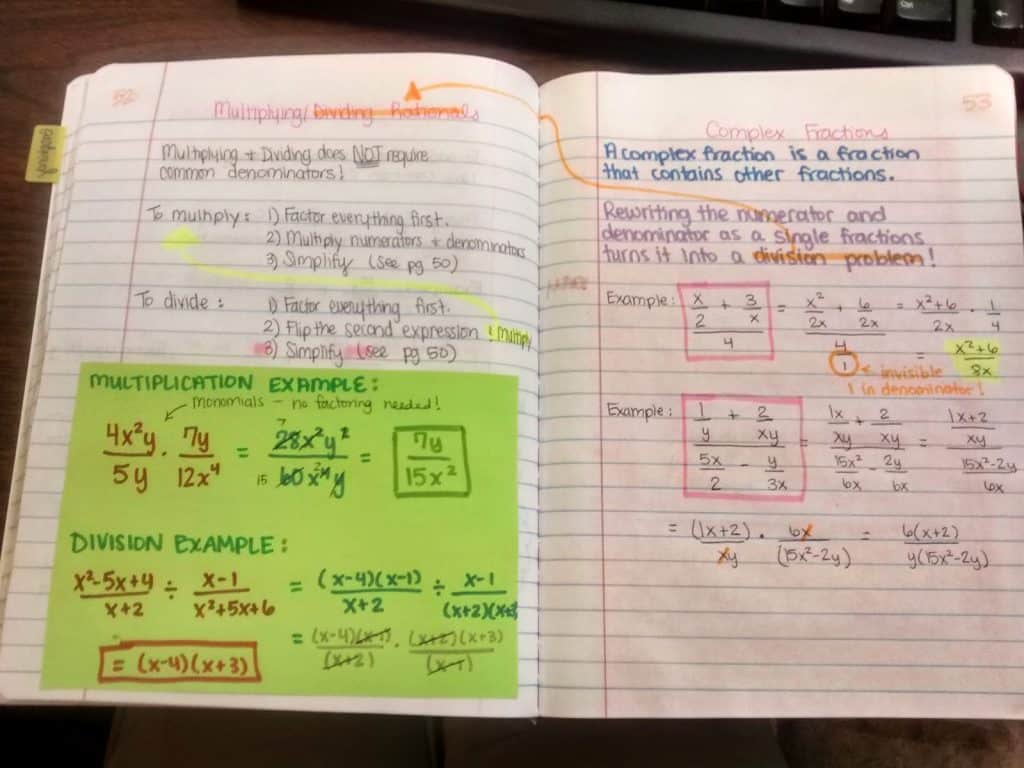 52
Multiplying/Dividing Rationals
Multiplying + Dividing does NOT require
common denominators!
To multiply: 1) Factor everything first.
2) Multiply numerators + denominators
3) Simplify (see pg 50)
To divide: 1) Factor everything first.
2) Flip the second expression & multiply
3) Simplify (see pg 50)
MULTIPLICATION EXAMPLE:
monomials - no factoring needed!
4x²y/5y · 7y/12x⁴ = 28x²y²/60x⁴y = 7y/15x²
7
15 2
DIVISION EXAMPLE:
x²-5x+4/x+2 ÷ x-1/x²+5x+6 = (x-4)(x-1)/x+2 ÷ x-1/(x+2)(x+3)
= (x-4)(x-1)/(x+2) · (x+2)(x+3)/(x-1)
= (x-4)(x+3)
53
Complex Fractions
A complex fraction is a fraction
that contains other fractions.
Rewriting the numerator and
denominator as a single fractions
turns it into a division problem!
Example: (x/2 + 3/x)/4 = (x²/2x + 6/2x)/4 = x²+6/2x · 1/4
1
= x²+6/8x
← invisible
1 in denominator!
Example: (1/y + 2/xy)/(5x/2 - y/3x) = (1x/xy + 2/xy)/(15x²/6x - 2y/6x) = (1x+2/xy)/(15x²-2y/6x)
= (1x+2)/xy · 6x/(15x²-2y) = 6(x+2)/y(15x²-2y)
Ctrl